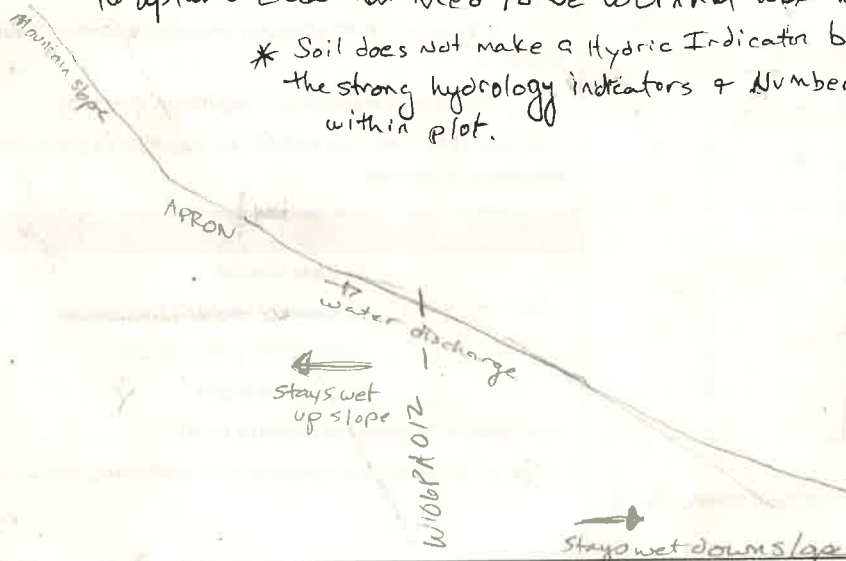 to be
* Soil does not make a Hydric Indicator b
the strong hydrology indicators & Number
within plot.
Mountain slope
APRON
water discharge
Stays wet
up slope
W106PA012
Stays wet downslope